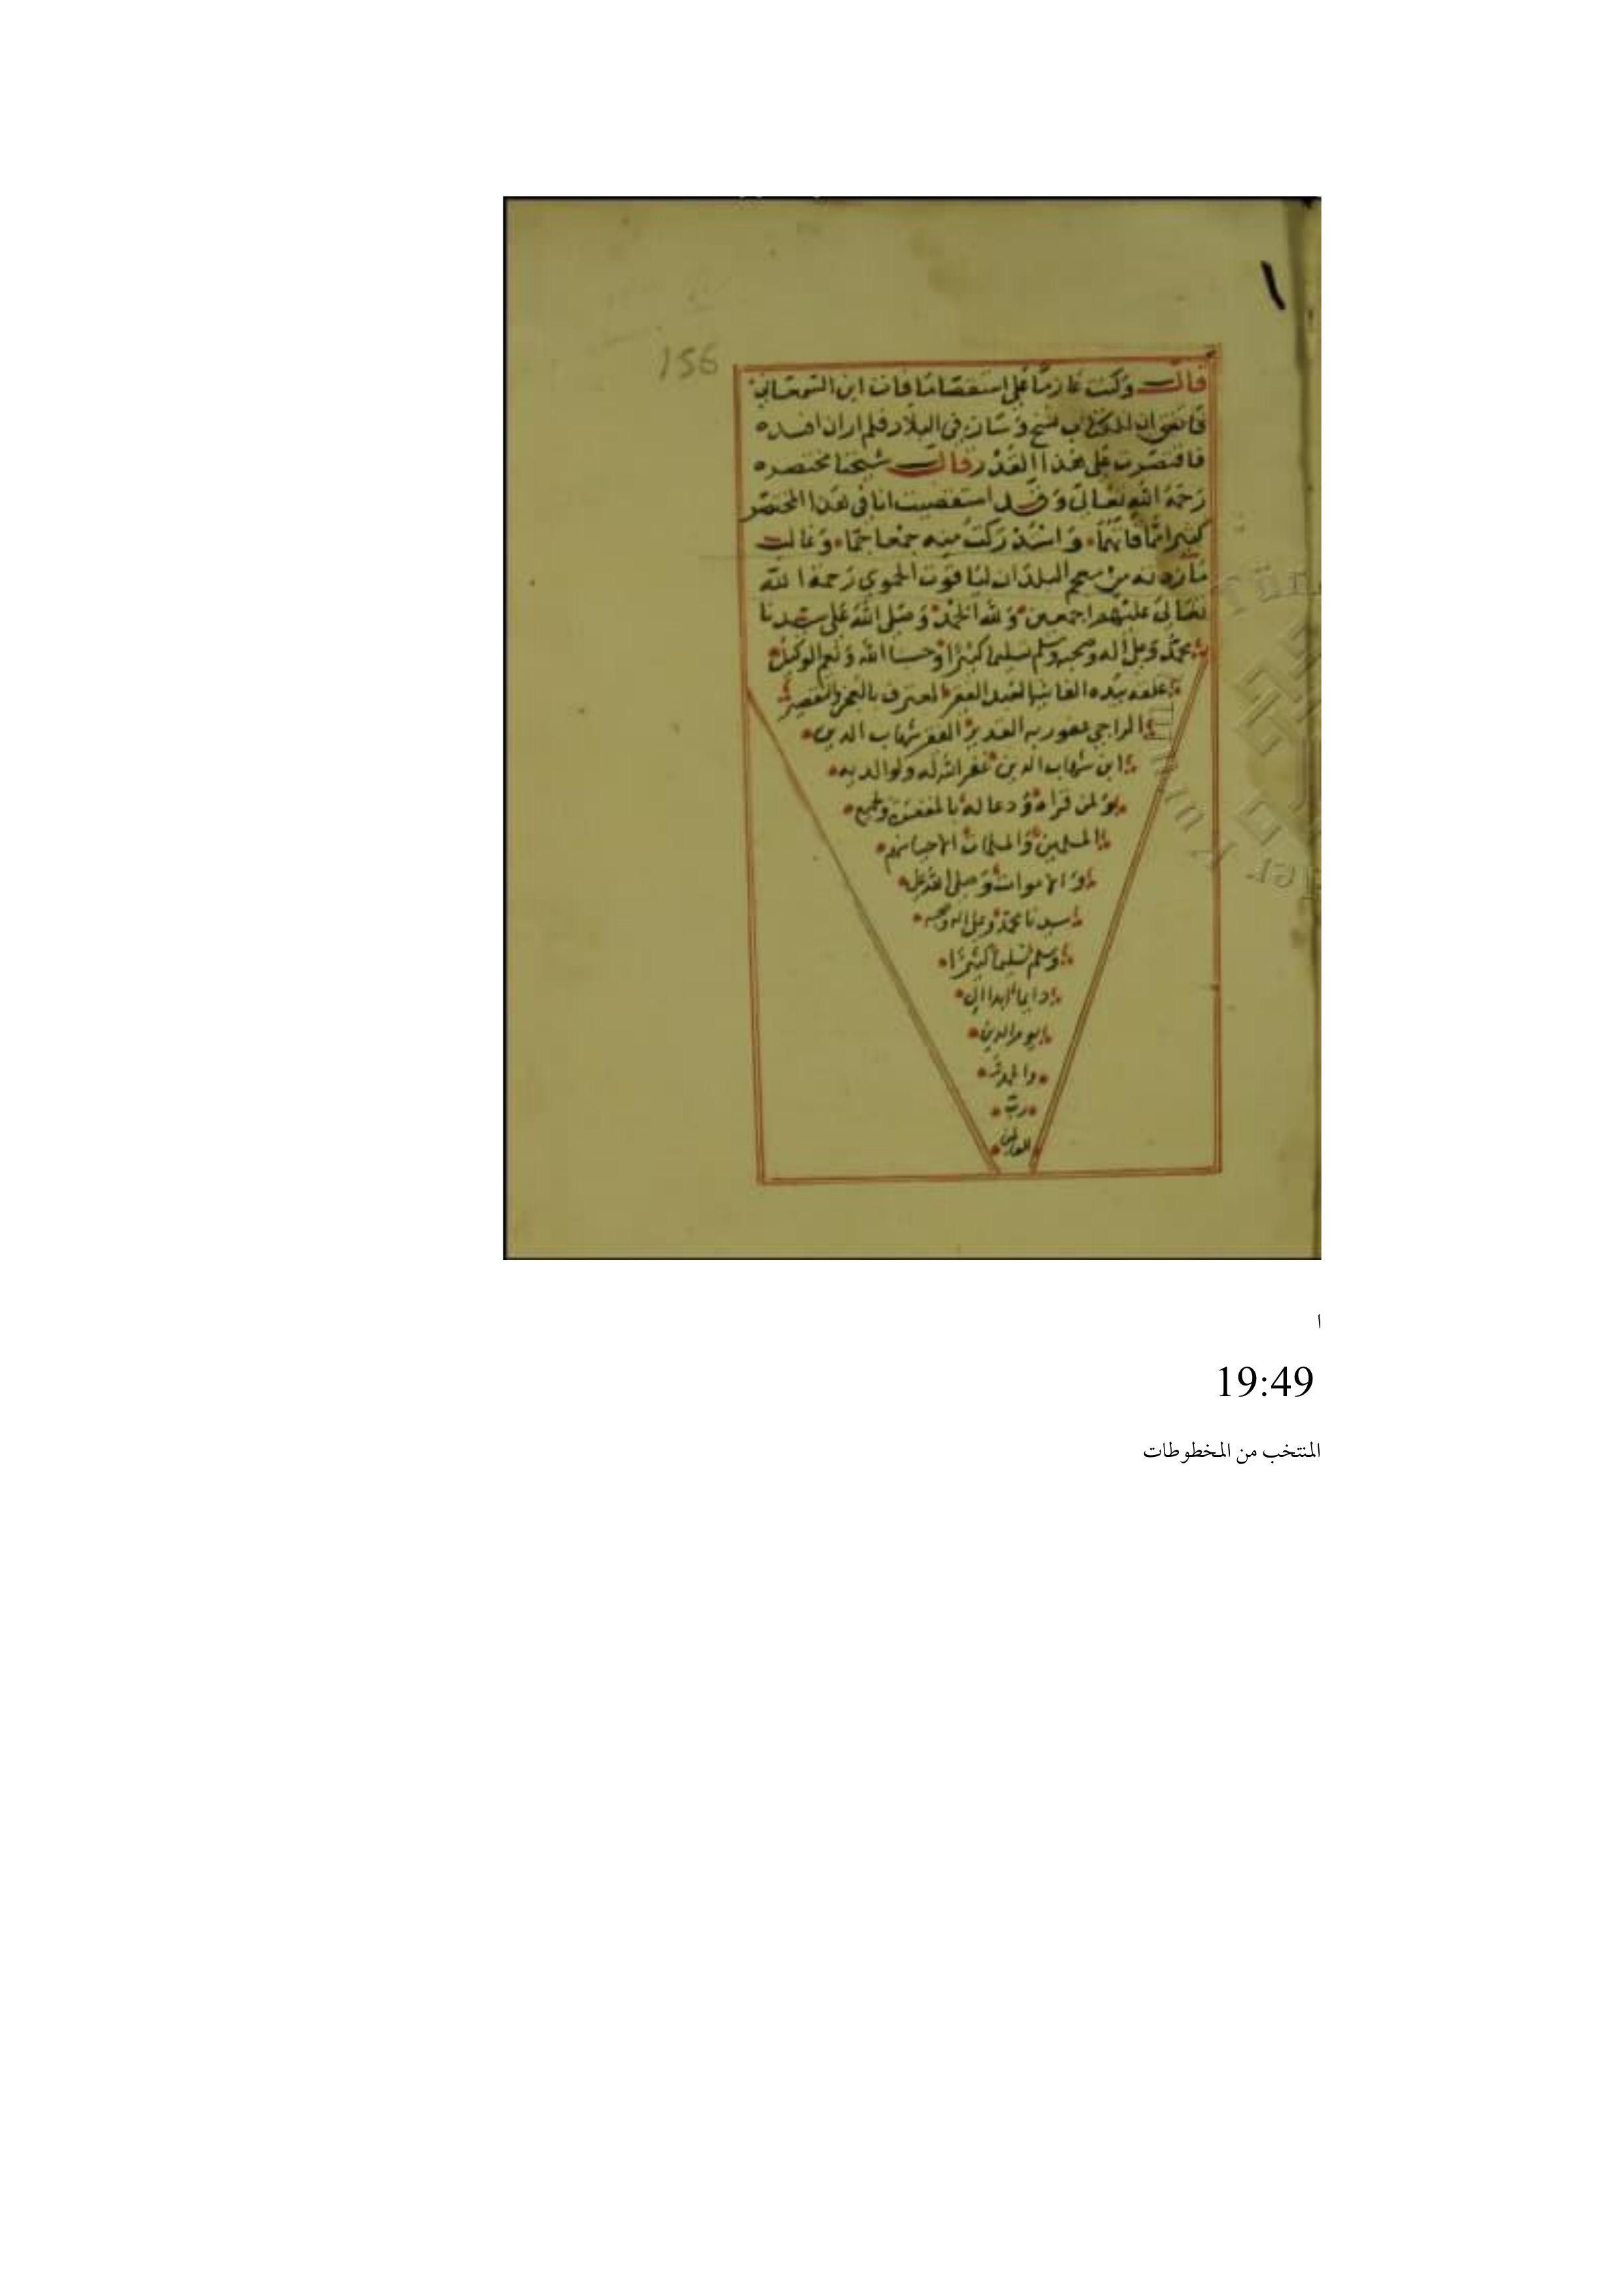 156
قال وكنت عازما على استقصا ما فات ابن السمعاني
فاتفق ان الكتاب نسخ وسار في البلاد فلم ار ان افسده
فاقتصرت على هذا القدر قال شيخنا مختصره
رحمه الله تعالى وقد استقصيت انا في هذا المختصر
كثيرا مما فاتهما واستدركت منه جمعا جما وغالب
ما زدته من معجم البلدان لياقوت الحموي رحمة الله
تعالى عليهم اجمعين ولله الحمد وصلى الله على سيدنا
محمد وعلى اله وصحبه وسلم تسليما كثيرا وحسبنا الله ونعم الوكيل
علقه بيده الفانية العبد الفقير المعترف بالعجز والتقصير
الراجي عفو ربه القدير الفقير شهاب الدين
ابن شهاب الدين غفر الله له ولوالديه
ولمن قراه ودعا له بالمغفرة ولجميع
المسلمين والمسلمات الاحيا منهم
والاموات وصلى الله على
سيدنا محمد وعلى اله وصحبه
وسلم تسليما كثيرا
دايما ابدا الى
يوم الدين
والحمد لله
رب
العالمين
ا
19:49
المنتخب من المخطوطات